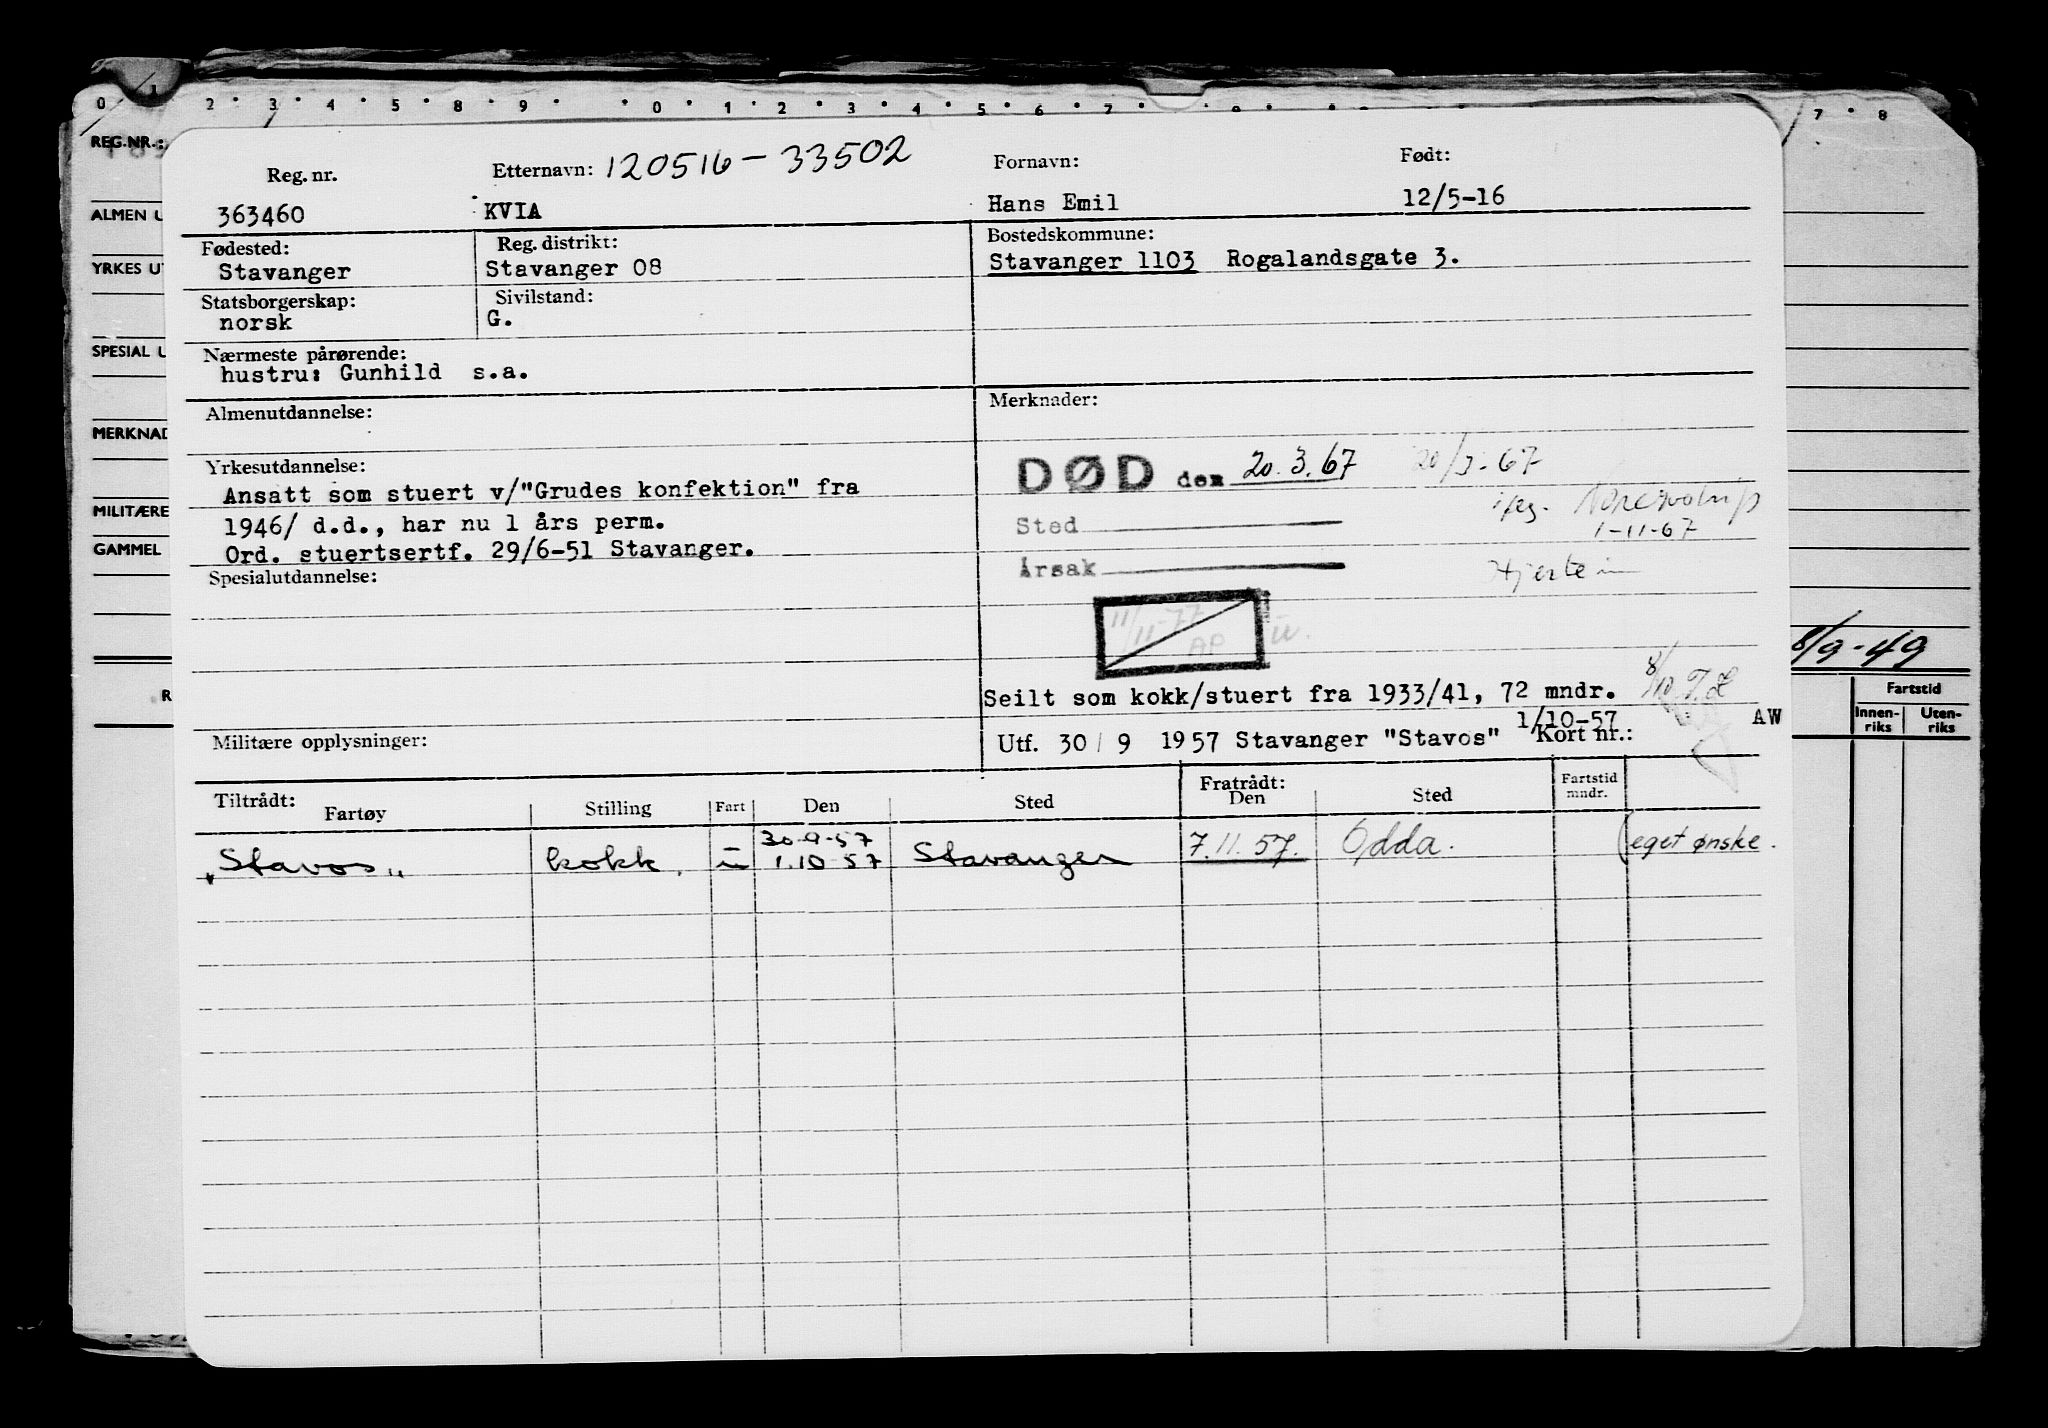 0 1 2 3 4 5 8 9 0 1 2 3 4 5 6 7 7 8
REG.NR.:
ALMEN U
YRKES UT
SPESIAL U
MERKNAD
MILITÆRE
GAMMEL
R
8/9-49
Fartstid
Innen-
riks
Uten-
riks
Reg. nr. Etternavn: 120516-33502 Fornavn: Født:
363460 KVIA Hans Emil 12/5-16
Fødested: Reg. distrikt: Bostedskommune:
Stavanger Stavanger 08 Stavanger 1103 Rogalandsgate 3.
Statsborgerskap: Sivilstand:
norsk G.
Nærmeste pårørende:
hustru: Gunhild s.a.
Almenutdannelse:
Yrkesutdannelse:
Ansatt som stuert v/"Grudes konfektion" fra
1946/ d.d., har nu 1 års perm.
Ord. stuertsertf. 29/6-51 Stavanger.
Spesialutdannelse:
Militære opplysninger:
Merknader:
DØD den 20.3.67 20/3-67
Sted
1-11-67
Årsak
11/11-77
AP
Seilt som kokk/stuert fra 1933/41, 72 mndr. 8/10
1/10-57 AW
Utf. 30/9 1957 Stavanger "Stavos" Kort nr.:
Tiltrådt: Fratrådt:
Fartøy Stilling Fart Den Sted Den Sted Fartstid
mndr.
30-9-57
"Stavos" kokk u 1.10-57 Stavanger 7.11.57. Odda. (eget ønske.